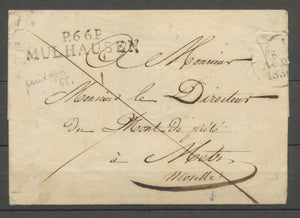 P.66.P.
MULHAUSEN
A Monsieur
Monsieur le Directeur
du Mont de piété
à Metz
Moselle